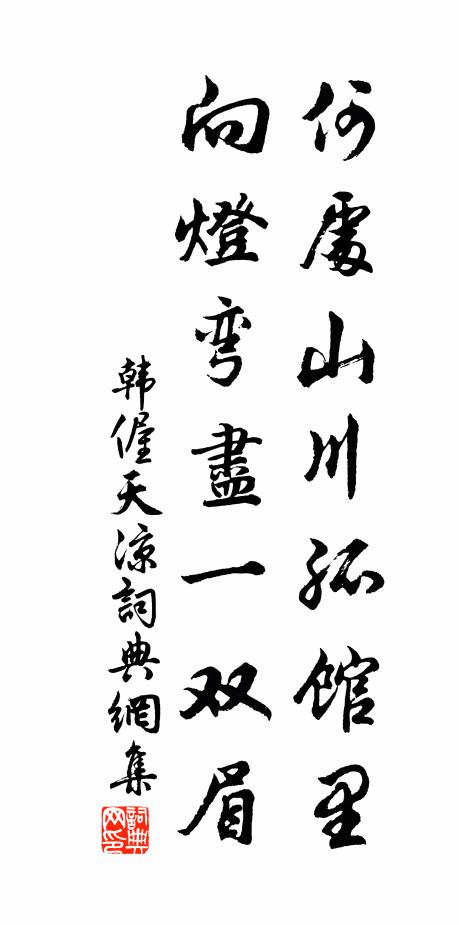 何處山川孤館里
向燈弯盡一双眉
韩偓天凉詞典網集
詞典网印